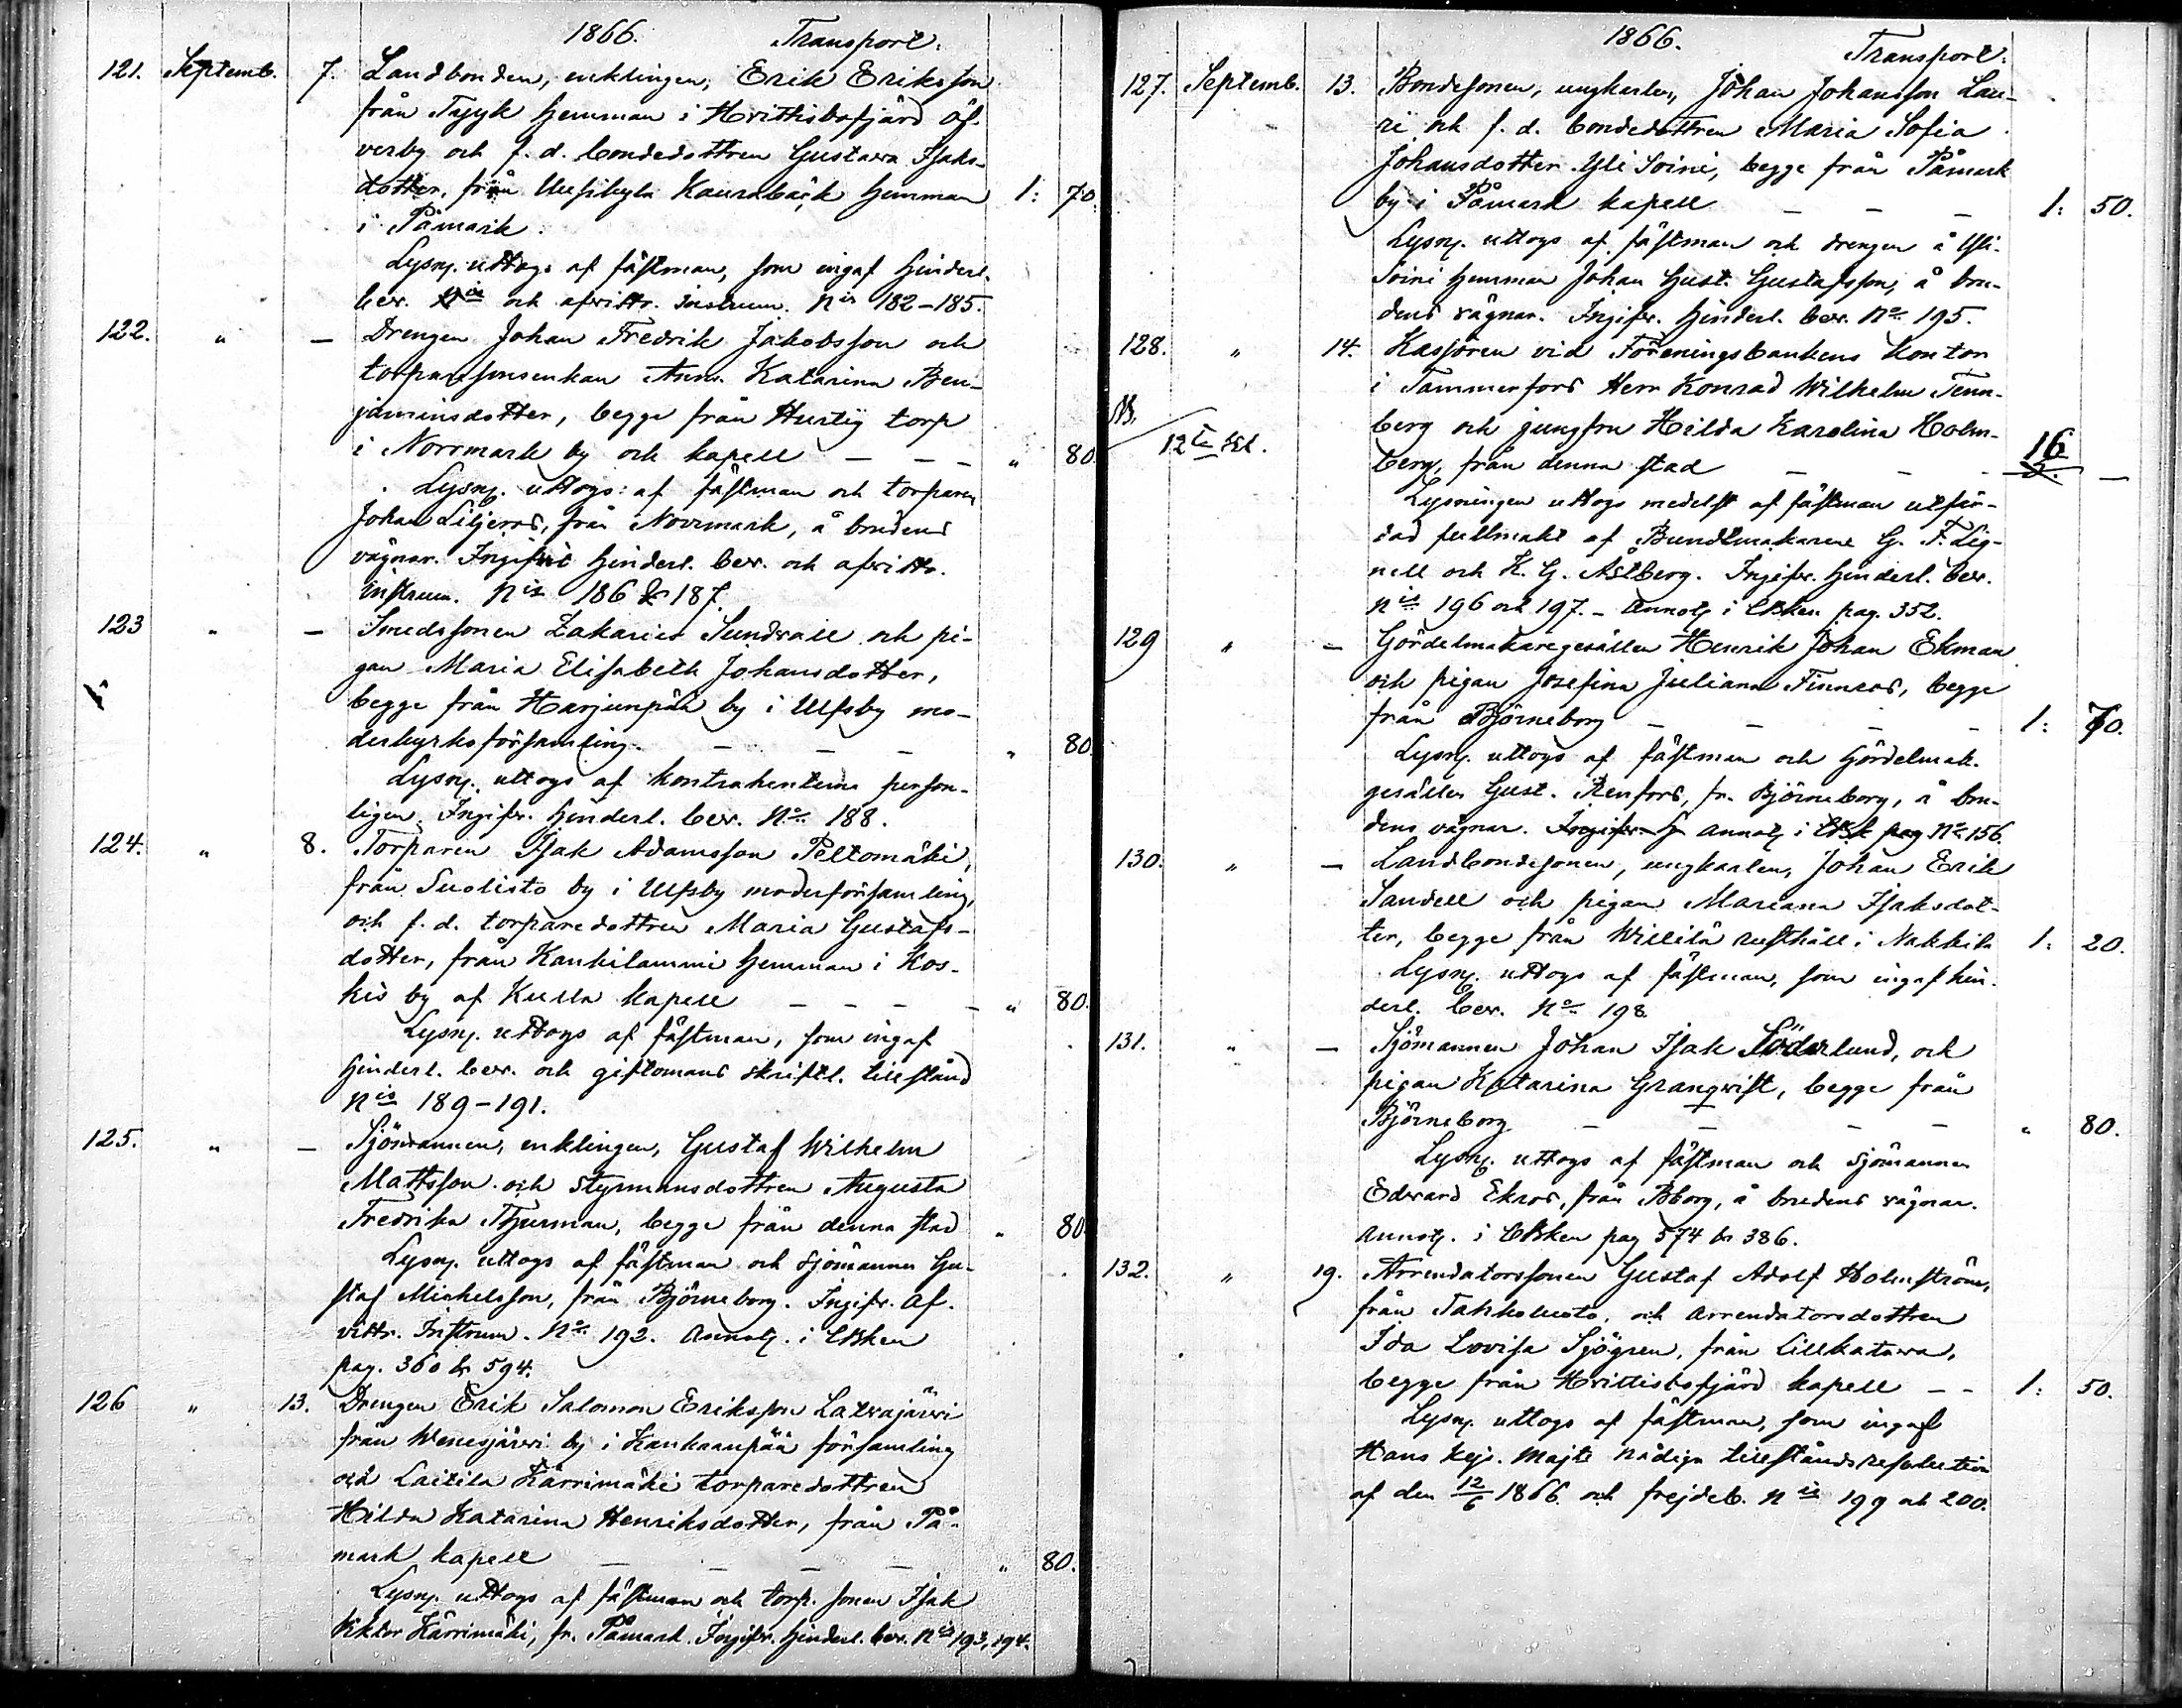 1866. Transport.
121. Septemb. 7. Landbonden, enklingen, Erik Eriksson
från Tajyk hemman i Hvittisbofjärd öf-
verby och f. d. bondedottren Gustava Isaks-
dotter, från Uusikylä Kaurabäck hemman 1: 70.
i Påmark.
Lysng. uttogs af fästman, som ingaf hinderl.
bev. och afvittr. instrum. Nis 182–185.
122. " — Drengen Johan Fredrik Jakobsson och
torparesonsenkan Anna Katarina Ben-
jaminsdotter, begge från Hurtig torp
i Norrmark by och kapell — — — " 80.
Lysng. uttogs af fästman och torparen
Johan Liljeros, från Norrmark, å brudens
vägnar. Ingifvit hinderl. bev. och afvittr.
instrum. Nis 186 & 187.
123 " — Smedssonen Zakarias Sundvall och pi-
gan Maria Elisabeth Johansdotter,
begge från Harjunpää by i Ulfsby mo-
derkyrkoförsamling. — — — " 80.
Lysng. uttogs af kontrahenterna person-
ligen. Ingifv. hinderl. bev. No 188.
124. " 8. Torparen Isak Adamsson Peltomäki,
från Suolisto by i Ulfsby moderförsamling,
och f. d. torparedottren Maria Gustafs-
dotter, från Kankilammi hemman i Kos-
kis by af Kulla kapell — — — — " 80.
Lysng. uttogs af fästman, som ingaf
hinderl. bev. och giftomans skriftl. tillstånd
Nis 189–191.
125. " — Sjömannen, enklingen, Gustaf Wilhelm
Mattsson och styrmansdottren Augusta
Fredrika Thurman, begge från denna stad " 80.
Lysng. uttogs af fästman och sjömannen Gu-
staf Michelsson, från Björneborg. Ingifv. af-
vittr. Instrum. No 192. Annotg. i CBken
pag. 360 & 594.
126 " 13. Drengen Erik Salomon Eriksson Latvajärvi
från Wenesjärvi by i Kankaanpää församling
och Laitila Kärrimäki torparedottren
Hilda Katarina Henriksdotter, från På-
mark kapell — — — " 80.
Lysng. uttogs af fästman och torp. sonen Isak
Viktor Kärrimäki, fr. Påmark. Ingifv. hinderl. bev. Nis 193, 194.
1866. Transport.
127. Septemb. 13. Bondesonen, ungkarlen, Johan Johansson Lau-
ri och f. d. bondedottren Maria Sofia
Johansdotter Yli Soini, begge från Påmark
by i Påmark kapell — — — 1: 50.
Lysng. uttogs af fästman och drengen å Yli-
Soini hemman Johan Gust. Gustafsson, å bru-
dens vägnar. Ingifv. hinderl. bev. No 195.
128. " 14. Kassören vid Föreningsbankens Kontor
i Tammerfors Herr Konrad Wilhelm Tenn-
NB.
berg och jungfru Hilda Karolina Holm-
12te berg, från denna stad — — — 16 —
Lysningen uttogs medelst af fästman utfär-
dad fullmakt af Bundtmakarene G. F. Lig-
nell och K. G. Åslberg. Ingifv. hinderl. bev.
Nis 196 och 197. – Annotg i CBken pag. 352.
129 " — Gördelmakaregesällen Henrik Johan Ekman
och pigan Josefina Juliana Finnros, begge
från Björneborg — — — — 1: 70.
Lysng. uttogs af fästman och Gördelmak.
gesällen Gust. Renfors, fr. Björneborg, å bru-
dens vägnar. Ingifv. h annotg i CBk pag No 156.
130. " — Landbondesonen, ungkarlen, Johan Erik
Sandell och pigan Mariana Isaksdot-
ter, begge från Willilä rusthåll i Nakkila 1: 20.
Lysng. uttogs af fästman, som ingaf hin-
derl. bev. No 198.
131. " — Sjömannen Johan Isak Söderlund, och
pigan Katarina Granqvist, begge från
Björneborg — — — — " 80.
Lysng. uttogs af fästman och sjömannen
Edvard Ekros, från Bborg, å brudens vägnar.
Annotg. i CBken pag 574 & 386.
132. " 19. Arrendatorssonen Gustaf Adolf Holmström,
från Tahkoluoto, och arrendatorsdottren
Ida Lovisa Sjögren, från Lillkatava,
begge från Hvittisbofjärd kapell — — 1: 50.
Lysng. uttogs af fästman, som ingaf
Hans Kejs. Majts nådiga tillståndsresolution
af den 12/6 1866 och frejdeb. Nis 199 och 200.